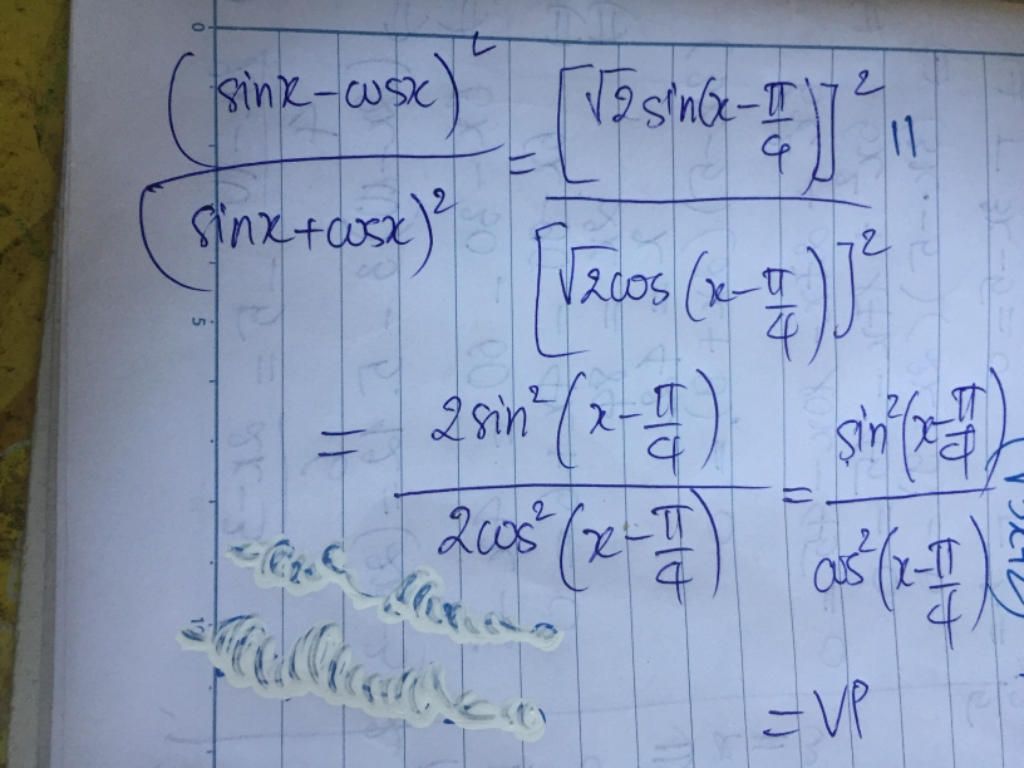 (sinx - cosx)² / (sinx + cosx)² = [√2 sin(x - π/4)]² / [√2 cos(x - π/4)]² =
= 2sin²(x - π/4) / 2cos²(x - π/4) = sin²(x - π/4) / cos²(x - π/4)
= VP
0
5